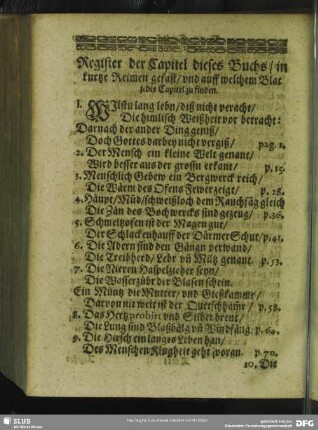 Register der Capitel dieses Buchs / in
kurtze Reimen gefast / vnd auff welchem Blat
jedes Capitel zu finden.
1. Wilstu lang lebn / diß nicht veracht /
Die himlisch Weißheit vor betracht:
Darnach der ander Ding geniß /
Doch Gottes darbey nicht vergiß / pag. 1.
2. Der Mensch ein kleine Welt genant /
Wird besser aus der grossn erkant / p. 15
3. Menschlich Gebew ein Bergwerck reich /
Die Wärm des Ofens Fewer zeigt / p. 28.
4. Häupt / Mūd / schweißloch dem Rauchfäg gleich
Die Zän des Bochwercks sind gezeug / p. 36.
5. Schmeltzofen ist der Magen gur /
Der Schlackenhauff der Därmer Schut / p. 41.
6. Die Adern sind den Gängn verwand /
Die Treibherd / Lebr vn̄ Miltz genant. p. 53.
7. Die Nieren Haspelzieher seyn /
Die Wasserzübr der Blasen schein.
Ein Müntz die Mutter / vnd Gießkammr /
Darvon nit weit ist der Quetschhamr / p. 58.
8. Das Hertz probirt vnd Silber brent /
Die Lung sind Blaßbälg vn̄ Windfäng. p. 64.
9. Die Hirsch ein langes Leben han /
Des Menschen Klugheit geht voran. p. 70.
10. Die
SLUB
DFG